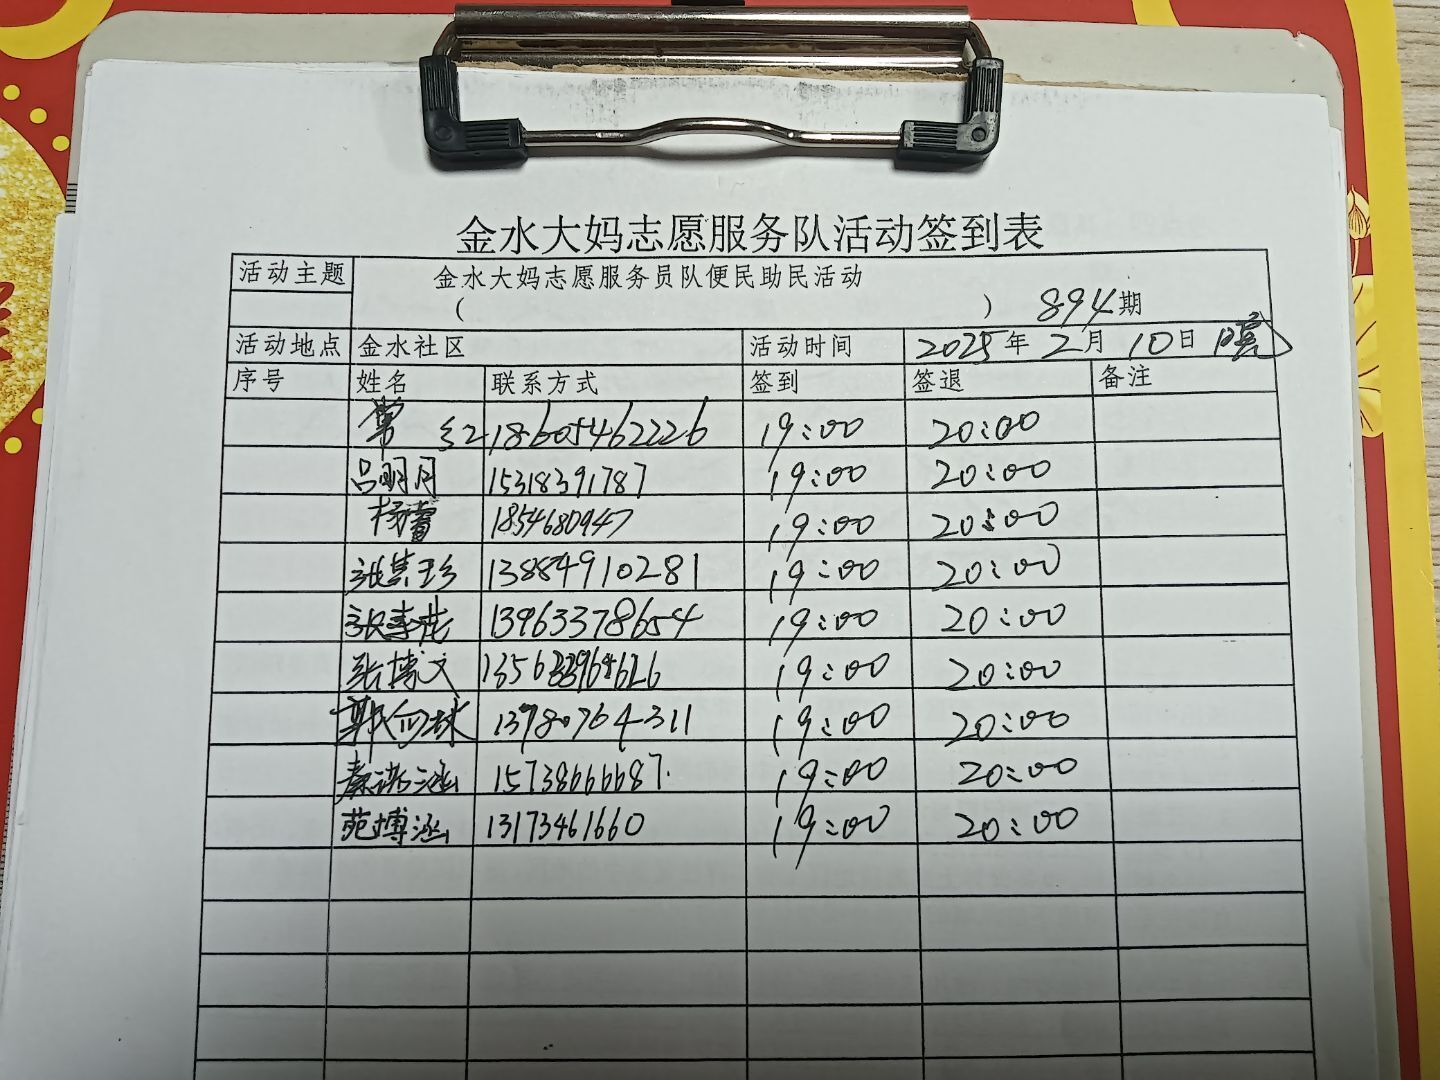 金水大妈志愿服务队活动签到表
活动主题 金水大妈志愿服务员队便民助民活动
( ) 894期
活动地点 金水社区 活动时间 2025年2月10日 晚
序号 姓名 联系方式 签到 签退 备注
常红 18605462226 19:00 20:00
吕明月 15318391787 19:00 20:00
杨蕾 1854680947 19:00 20:00
张 13884910281 19:00 20:00
张 13963378654 19:00 20:00
张博文 19:00 20:00
郭 13780764311 19:00 20:00
秦诺涵 15738666687 19:00 20:00
苑博涵 13173461660 19:00 20:00